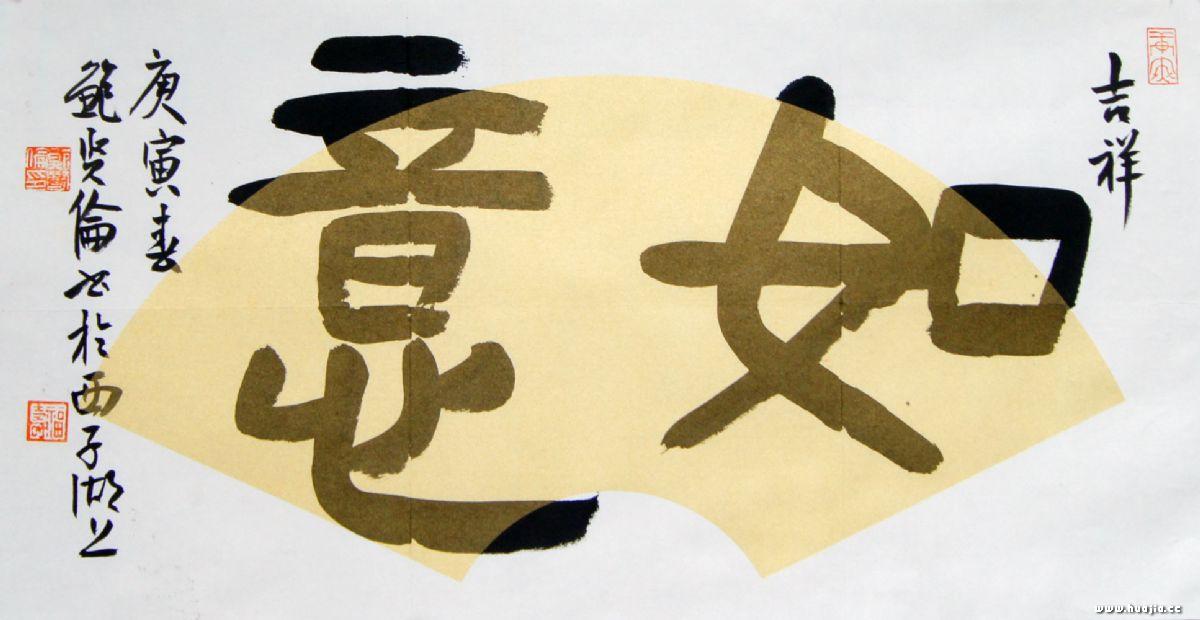 吉祥
如意
庚寅春
鲍贤倫书於西子湖上
www.huajia.cc